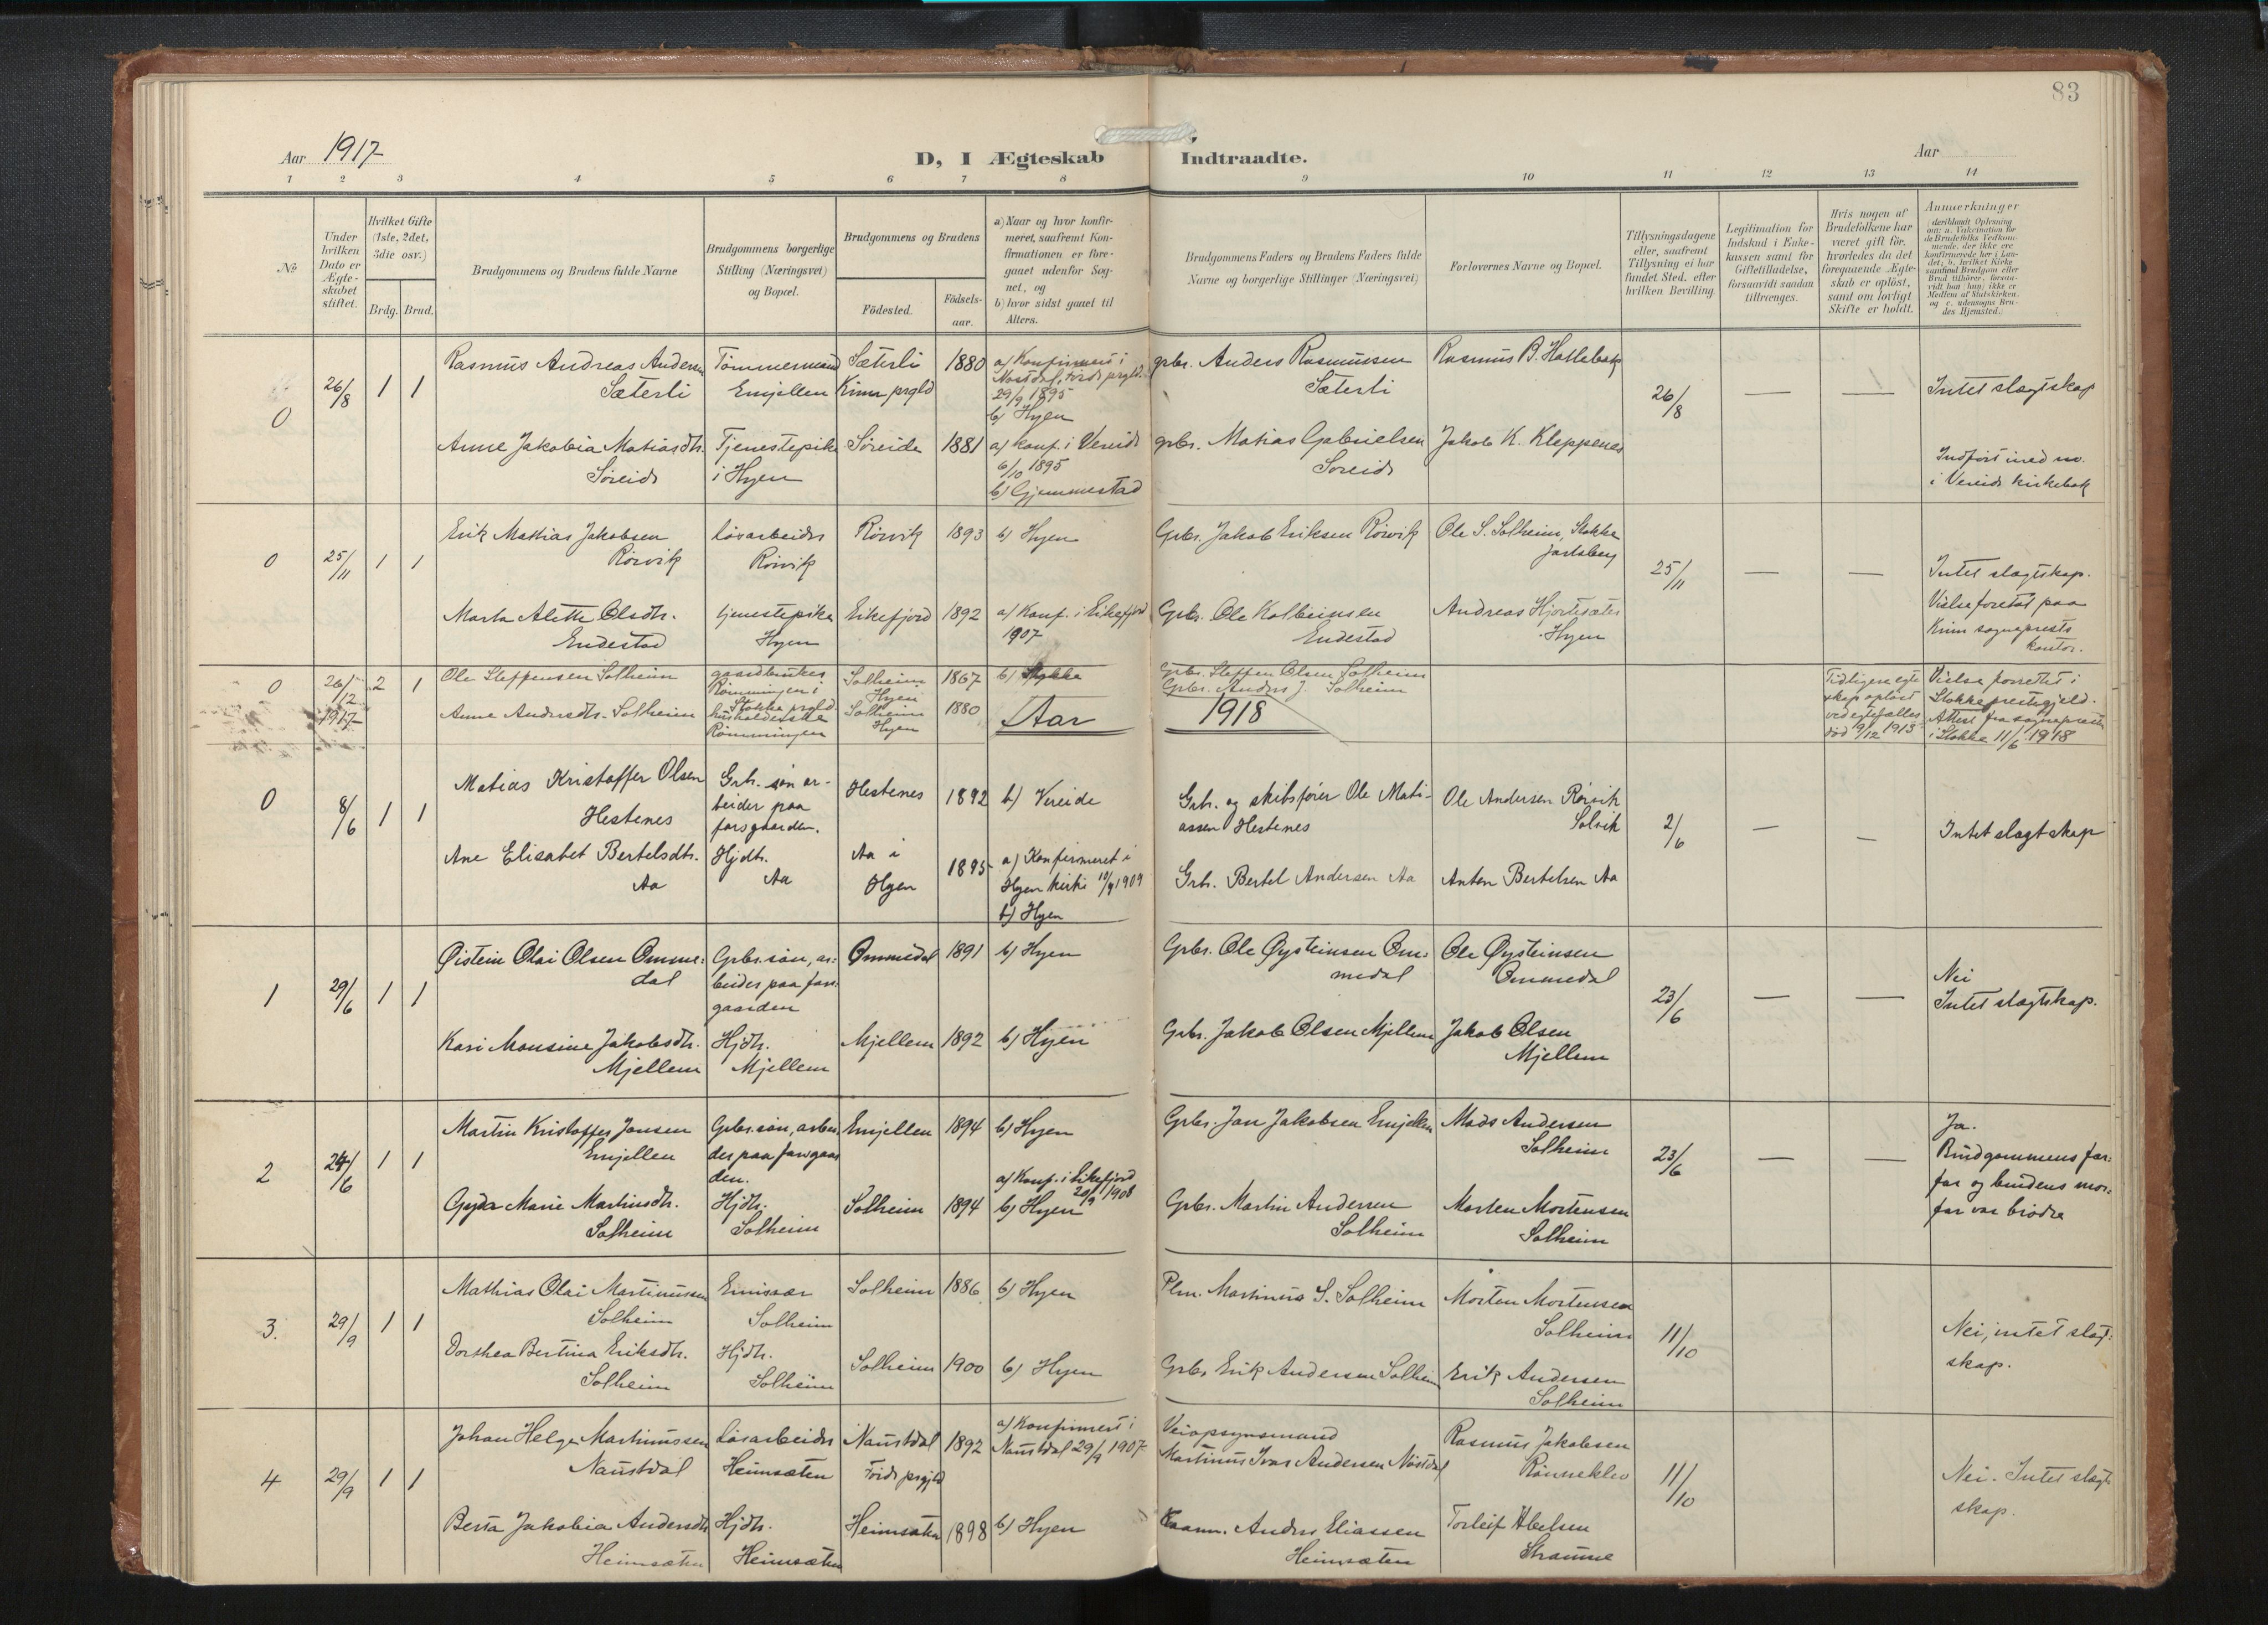 83
Aar 1917
D, I Ægteskab Indtraadte.
Aar
1 2 3 4 5 6 7 8 9 10 11 12 13 14
No
Under hvilken Dato er Ægteskabet stiftet.
Hvilket Gifte (1ste, 2det, 3die osv.)
Brdg. Brud.
Brudgommens og Brudens fulde Navne
Brudgommens borgerlige Stilling (Næringsvei) og Bopæl.
Brudgommens og Brudens
Födested.
Födsels-aar.
a) Naar og hvor konfirmeret, saafremt Konfirmationen er foregaaet udenfor Sognet, og
b) hvor sidst gaaet til Alters.
Brudgommens Faders og Brudens Faders fulde Navne og borgerlige Stillinger (Næringsvei)
Forlovernes Navne og Bopæl.
Tillysningsdagene eller, saafremt Tillysning ei har fundet Sted, efter hvilken Bevilling.
Legitimation for Indskud i Enkekassen samt for Giftetilladelse, forsaavidt saadan tiltrænges.
Hvis nogen af Brudefolkene har været gift för, hvorledes da det foregaaende Ægteskab er oplöst, samt om lovligt Skifte er holdt.
Anmærkninger
0 26/8 1 1
Rasmus Andreas Andersen Sæterli
Tømmermand Emjellen
Sæterli Kinn prgld
1880
a) Konfirmert i Nostdal, Førde prgld. 29/9 1895
b) Hyen
grbr. Anders Rasmussen Sæterli
Rasmus B. Hatlebak
26/8 — —
Intet slagtskap
Anne Jakobia Matiasdtr. Søreide
Tjenestepike i Hyen
Søreide
1881
a) konf. i Vereide 6/10 1895
b) Gjemmestad
grbr. Matias Gabrielsen Soreide
Jakob K. Kleppenes
Indført med no. i Vereide kirkebok
0 25/11 1 1
Erik Matias Jakobsen Rørvik
Løsarbeider Rørvik
Rørvik
1893
b) Hyen
Grbr. Jakob Eriksen Rørvik
Ole S. Solheim, Stokke Jarlsberg
25/11 — —
Intet slagtskap. Vielse foretat paa Kinn sogneprests kontor.
Marta Alette Olsdtr. Endestad
tjenestepike Hyen
Eikefjord
1892
a) Konf. i Eikefjord 1907
Grbr. Ole Kolbeinsen Endestad
Andreas Hjortesæter Hyen
0 26/12 1917 2 1
Ole Steffensen Solheim
gaardbruker Rømmingen i Stokke prgld
Solheim Hyen
1867
b) Stokke
Grbr. Steffen Olsen Solheim
Tidligere egteskap opløst ved egtefælles død 9/12 1915
Vielse forrettet i Stokke prestegjeld. Attest fra sognepresten i Stokke 11/6 1918
Anne Andersdtr. Solheim
husholderske Rømmingen
Solheim Hyen
1880
Grbr. Anders J. Solheim
Aar 1918
0 8/6 1 1
Matias Kristoffer Olsen Hestenes
Grb. søn arbeider paa farsgaarden.
Hestenes
1892
b) Vereide
Grb. og skibsfører Ole Matiassen Hestenes
Ole Andersen Rørvik Solvik
2/6 — —
Intet slagtskap
Ane Elisabet Bertelsdtr. Aa
Hjdtr. Aa
Aa i Hyen
1895
a) Konfirmeret i Hyen kirke 10/9 1909
b) Hyen
Grb. Bertel Andersen Aa
Anton Bertelsen Aa
1 29/6 1 1
Øistein Olai Olsen Ommedal
Grbr. søn, arbeider paa farsgaarden
Ommedal
1891
b) Hyen
Grbr. Ole Øysteinsen Ommedal
Ole Øysteinsen Ommedal
23/6 — —
Nei
Intet slagtskap.
Kari Monsine Jakobsdtr. Mjellem
Hjdtr. Mjellem
Mjellem
1892
b) Hyen
Grbr. Jakob Olsen Mjellem
Jakob Olsen Mjellem
2 29/6 1 1
Martin Kristoffer Jonsen Emjellen
Grbr. søn, arbeider paa farsgaarden.
Emjellen
1894
b) Hyen
Grbr. Jon Jakobsen Emjellen
Mads Andersen Solheim
23/6 — —
Ja.
Brudgommens farfar og brudens morfar var brødre
Gyda Marie Martinsdtr. Solheim
Hjdtr. Solheim
Solheim
1894
a) Konf. i Eikefjord 20/9 1908
b) Hyen
Grbr. Martin Andersen Solheim
Morten Mortensen Solheim
3. 29/9 1 1
Mathias Olai Martinussen Solheim
Emissær Solheim
Solheim
1886
b) Hyen
Plm. Martinus S. Solheim
Morten Mortensen Solheim
11/10
Nei, intet slagtskap.
Dorthea Bertina Eriksdtr. Solheim
Hjdtr. Solheim
Solheim
1900
b) Hyen
Grbr. Erik Andersen Solheim
Erik Andersen Solheim
4 29/9 1 1
Johan Helge Martinussen Naustdal
Løsarbeider Heimsæten
Naustdal Førde prgjld
1892
a) Konfirmert i Naustdal 29/9 1907
Veiopsynsmand Martinus Ivar Andersen Nøstdal
Rasmus Jakobsen Rønneklev
11/10
Nei. Intet slagtskap.
Berta Jakobia Andersdtr Heimsæten
Hjdtr. Heimsæten
Heimsæten
1898
b) Hyen
Kaarm. Anders Eliassen Heimsæten
Torleif Abelsen Straume